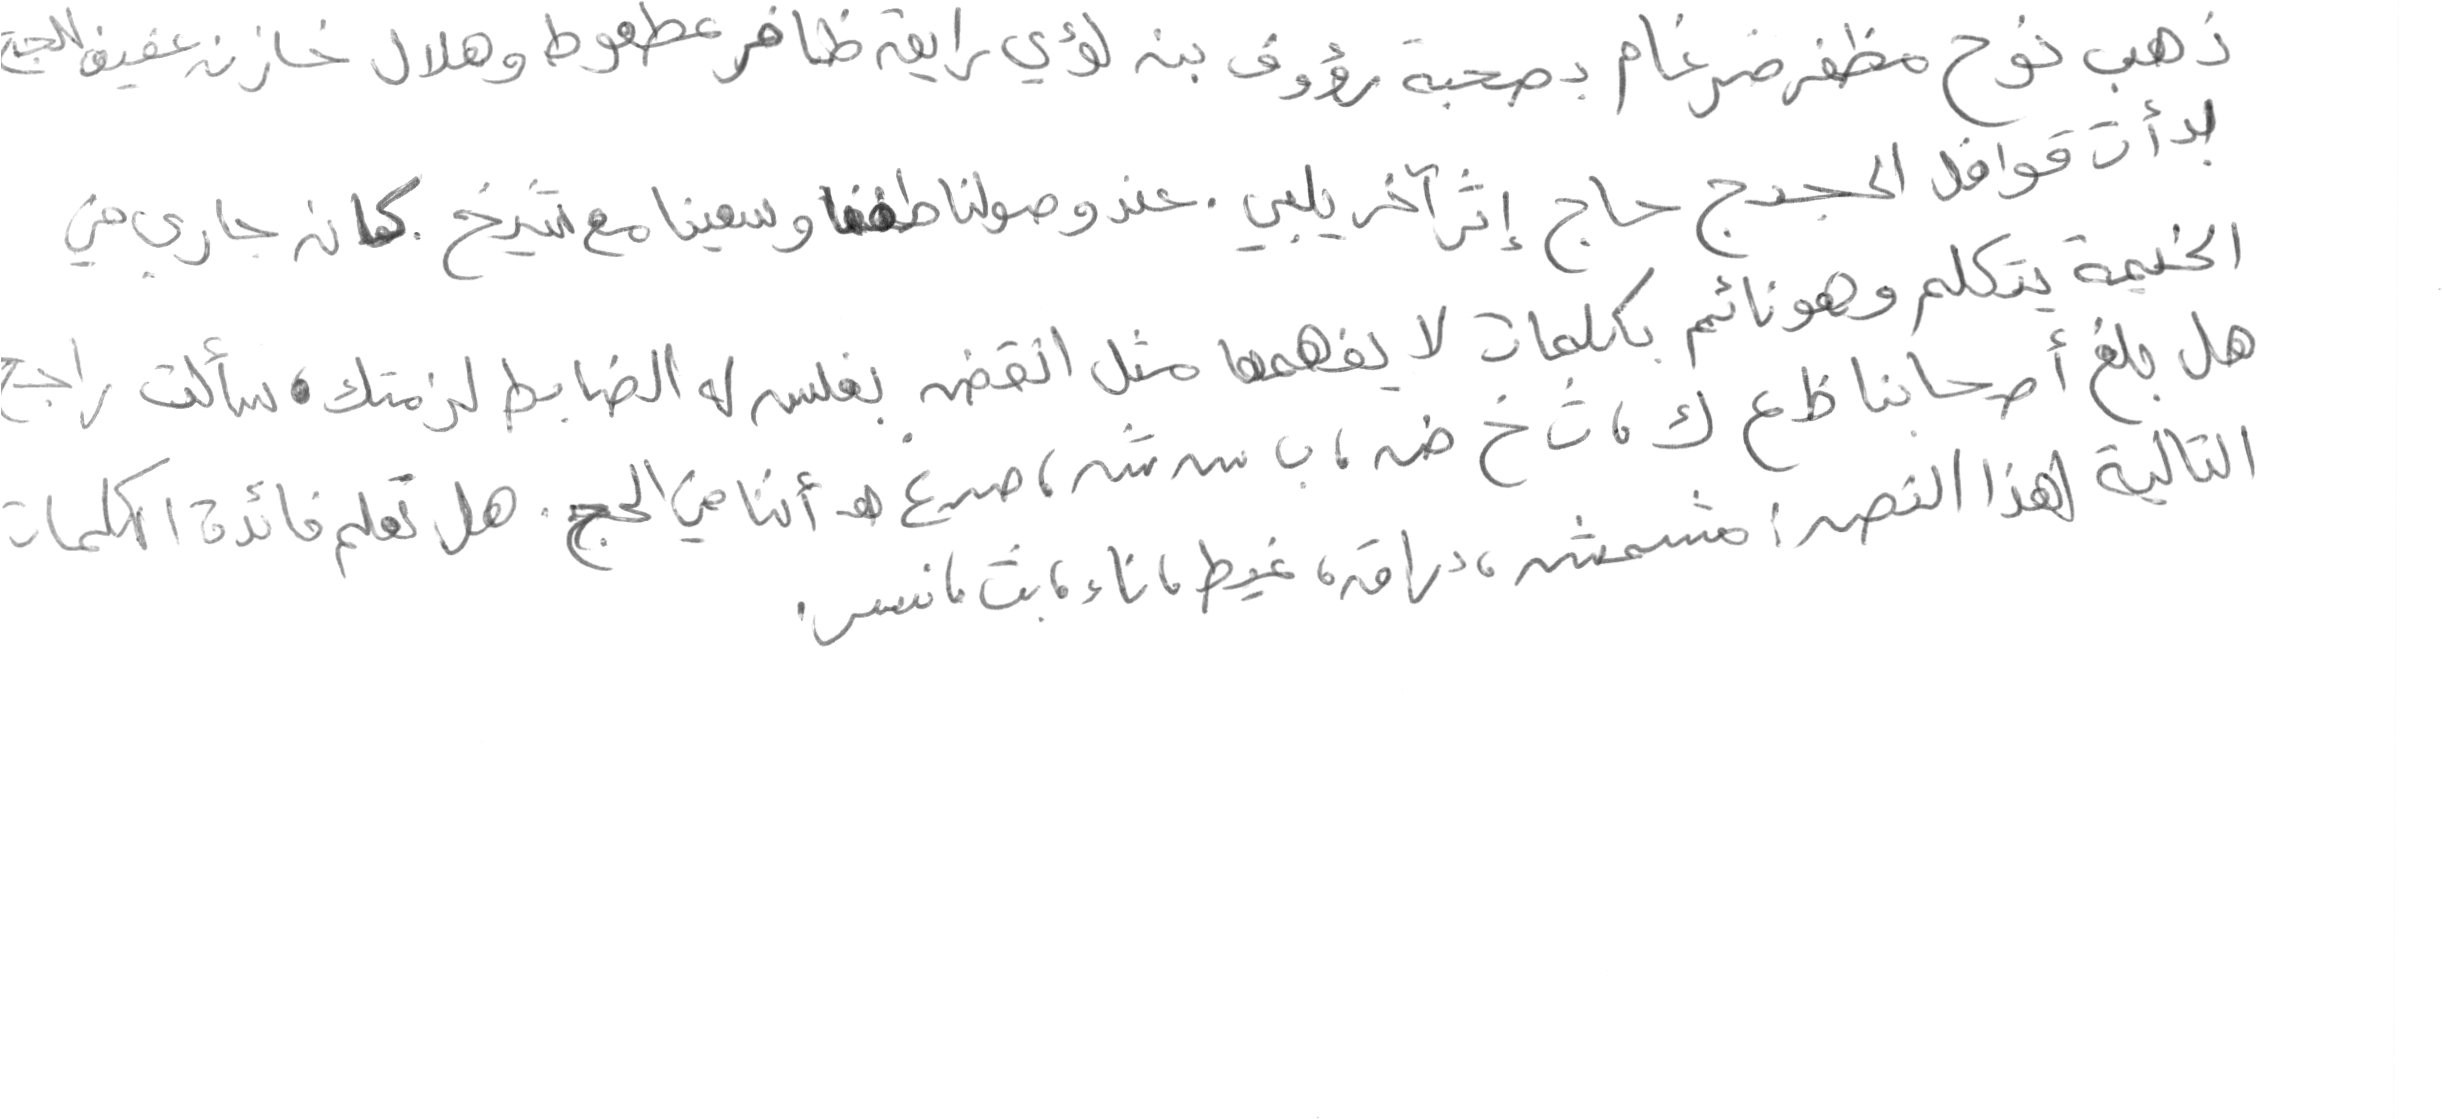 ذهب نوح مظفر ضرغام بصحبة رؤوف بن لؤي رايق ظافر عطعوط وهلال خازن عفيف لحج
بدأت قوافل الحجيج حاج إثر آخر يلبي. عند وصولنا طفنا وسعينا مع شيخ. كان جاري في
الخيمة يتكلم وهو نائم بكلمات لا يفهمها مثل انقض بغلس له الضابط لزمتك، سألت راجح
هل بلغ أصحابنا ظ ع ك، ث خ ض، ب س ش، ص ع هـ أننا في الحج. هل تعلم فائدة الكلمات
التالية لهذا النص: مشمش، دراق، غيط، ناء، بث، نسس.